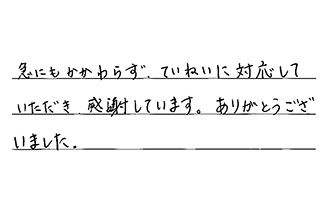 急にもかかわらず、ていねいに対応して
いただき、感謝しています。ありがとうござ
いました。